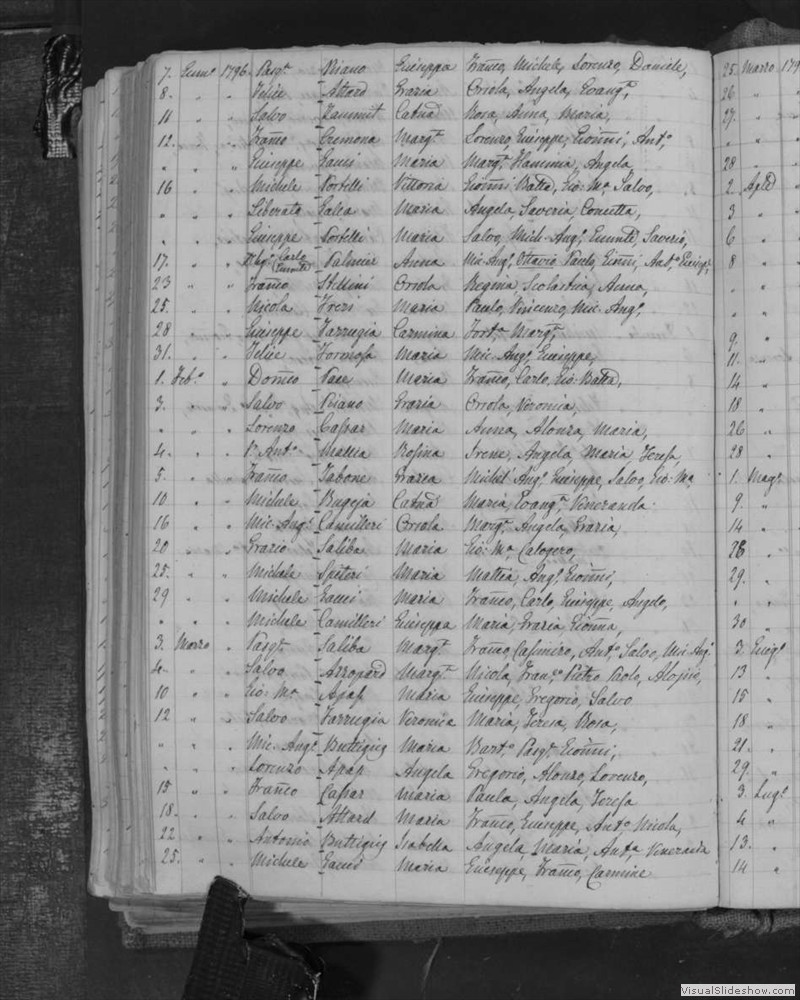 7. Genn.º 1796. Pasq.l Piano Giuseppa Franco, Michele, Lorenzo, Daniele,
8. " " Felice Attard Grazia Orsola, Angela, Evang.a,
11 " " Salvo Zammit Catna Rosa, Anna, Maria,
12. " " Franco Cremona Marg.ta Lorenzo, Giuseppe, Gionni, Ant.º,
" " " Giuseppe Gauci Maria Marg.ta, Angela
16 " " Michele Portelli Vittoria Gionni Batta, Gio: M.a Salvo,
" " " Liberato Galea Maria Angela, Saveria, Concetta,
" " " Giuseppe Portelli Maria Salvo, Mich. Ang.º, Saverio,
17. " " Carlo Palmier Anna Mic. Ang.º Ottavio Paulo, Gionni, Ant.º Giusp.e
23 " " Franco Stellini Orsola Regina Scolastica, Anna,
25. " " Nicola Maria Paulo, Vincenzo, Mic. Ang.º
28 " " Giuseppe Farrugia Carmina Fort.ta Marg.ta
31. " " Felice Formosa Maria Mic. Ang.º Giuseppe,
1. Feb.º " Domco Pace Maria Franco, Carlo, Gio: Batta,
3. " " Salvo Piano Grazia Orsola, Veronica,
" " " Lorenzo Caspar Maria Anna, Alonza, Maria,
4. " " Ant.º Mallia Rosina Irene, Angela Maria Teresa,
5. " " Franco Tabone Grazia Michel' Ang.º Giuseppe, Salvo, Gio: M.a
10 " " Michele Bugeja Catna Maria, Evang.a, Veneranda
16 " " Mic. Ang.º Camilleri Orsola Marg.ta Angela, Grazia,
20 " " Grazio Saliba Maria Gio: M.a Calogero,
25. " " Michele Spiteri Maria Mattia, Ang.º, Gionni,
29 " " Michele Gauci Maria Franco, Carlo, Giuseppe, Angelo,
" " " Michele Camilleri Giuseppa Maria, Grazia, Gionna,
3. Marzo " Pasq.l Saliba Marg.ta Franco Casimiro, Ant.º Salvo, Mic. Ang.º
4. " " Salvo Azzopard Marg.ta Nicola, Franc.º Pietro Paolo, Aloisio,
10 " " Gio: M.a Apap Maria Giuseppe, Gregorio, Salvo
12 " " Salvo Farrugia Veronica Maria, Teresa, Rosa,
" " " Mic. Ang.º Buttigieg Maria Bart.º Pasq.l Gionni,
" " " Lorenzo Apap Angela Gregorio, Alonzo, Lorenzo,
15 " " Franco Caspar Maria Paula, Angela, Teresa
18. " " Salvo Attard Maria Franco, Giuseppe, Ant.º Nicola,
22 " " Antonio Buttigieg Isabella Angela, Maria, Ant.a Veneranda
25. " " Michele Gauci Maria Giuseppe, Franco, Carmine
25. Marzo 179
26 "
27. "
" "
28 "
2. Aple
3 "
6 "
8 "
" "
" "
9. "
11. "
14 "
18 "
26 "
28 "
1. Mag.º
9. "
14 "
28 "
29. "
" "
30 "
3. Giug.º
13 "
15 "
18 "
21. "
29. "
3. Lug.º
4 "
13. "
14 "
VisualSlideshow.com